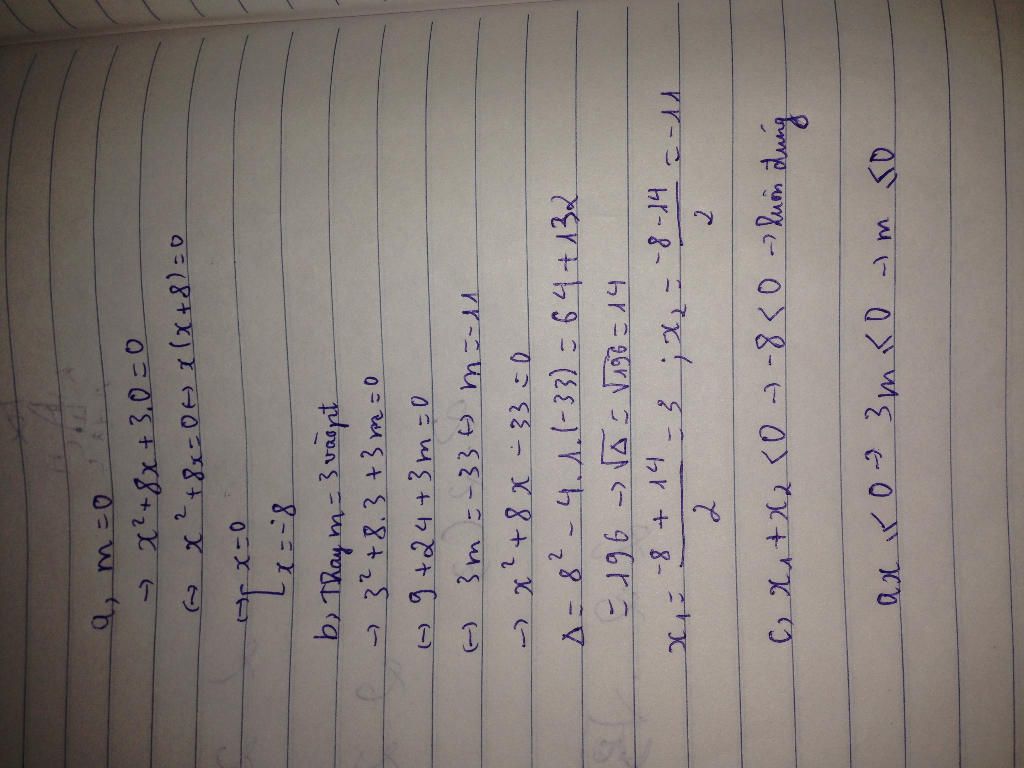 a, m=0
→ x²+8x+3.0=0
↔ x²+8x=0 ↔ x(x+8)=0
↔ [ x=0
[ x=-8
b, Thay m=3 vào pt
→ 3²+8.3+3m=0
↔ 9+24+3m=0
↔ 3m=-33 ↔ m=-11
→ x²+8x-33=0
Δ = 8² - 4.1.(-33) = 64+132
= 196 → √Δ = √196 = 14
x₁ = (-8+14)/2 = 3 ; x₂ = (-8-14)/2 = -11
c, x₁+x₂<0 → -8<0 → luôn đúng
ax ≤ 0 → 3m ≤ 0 → m ≤ 0